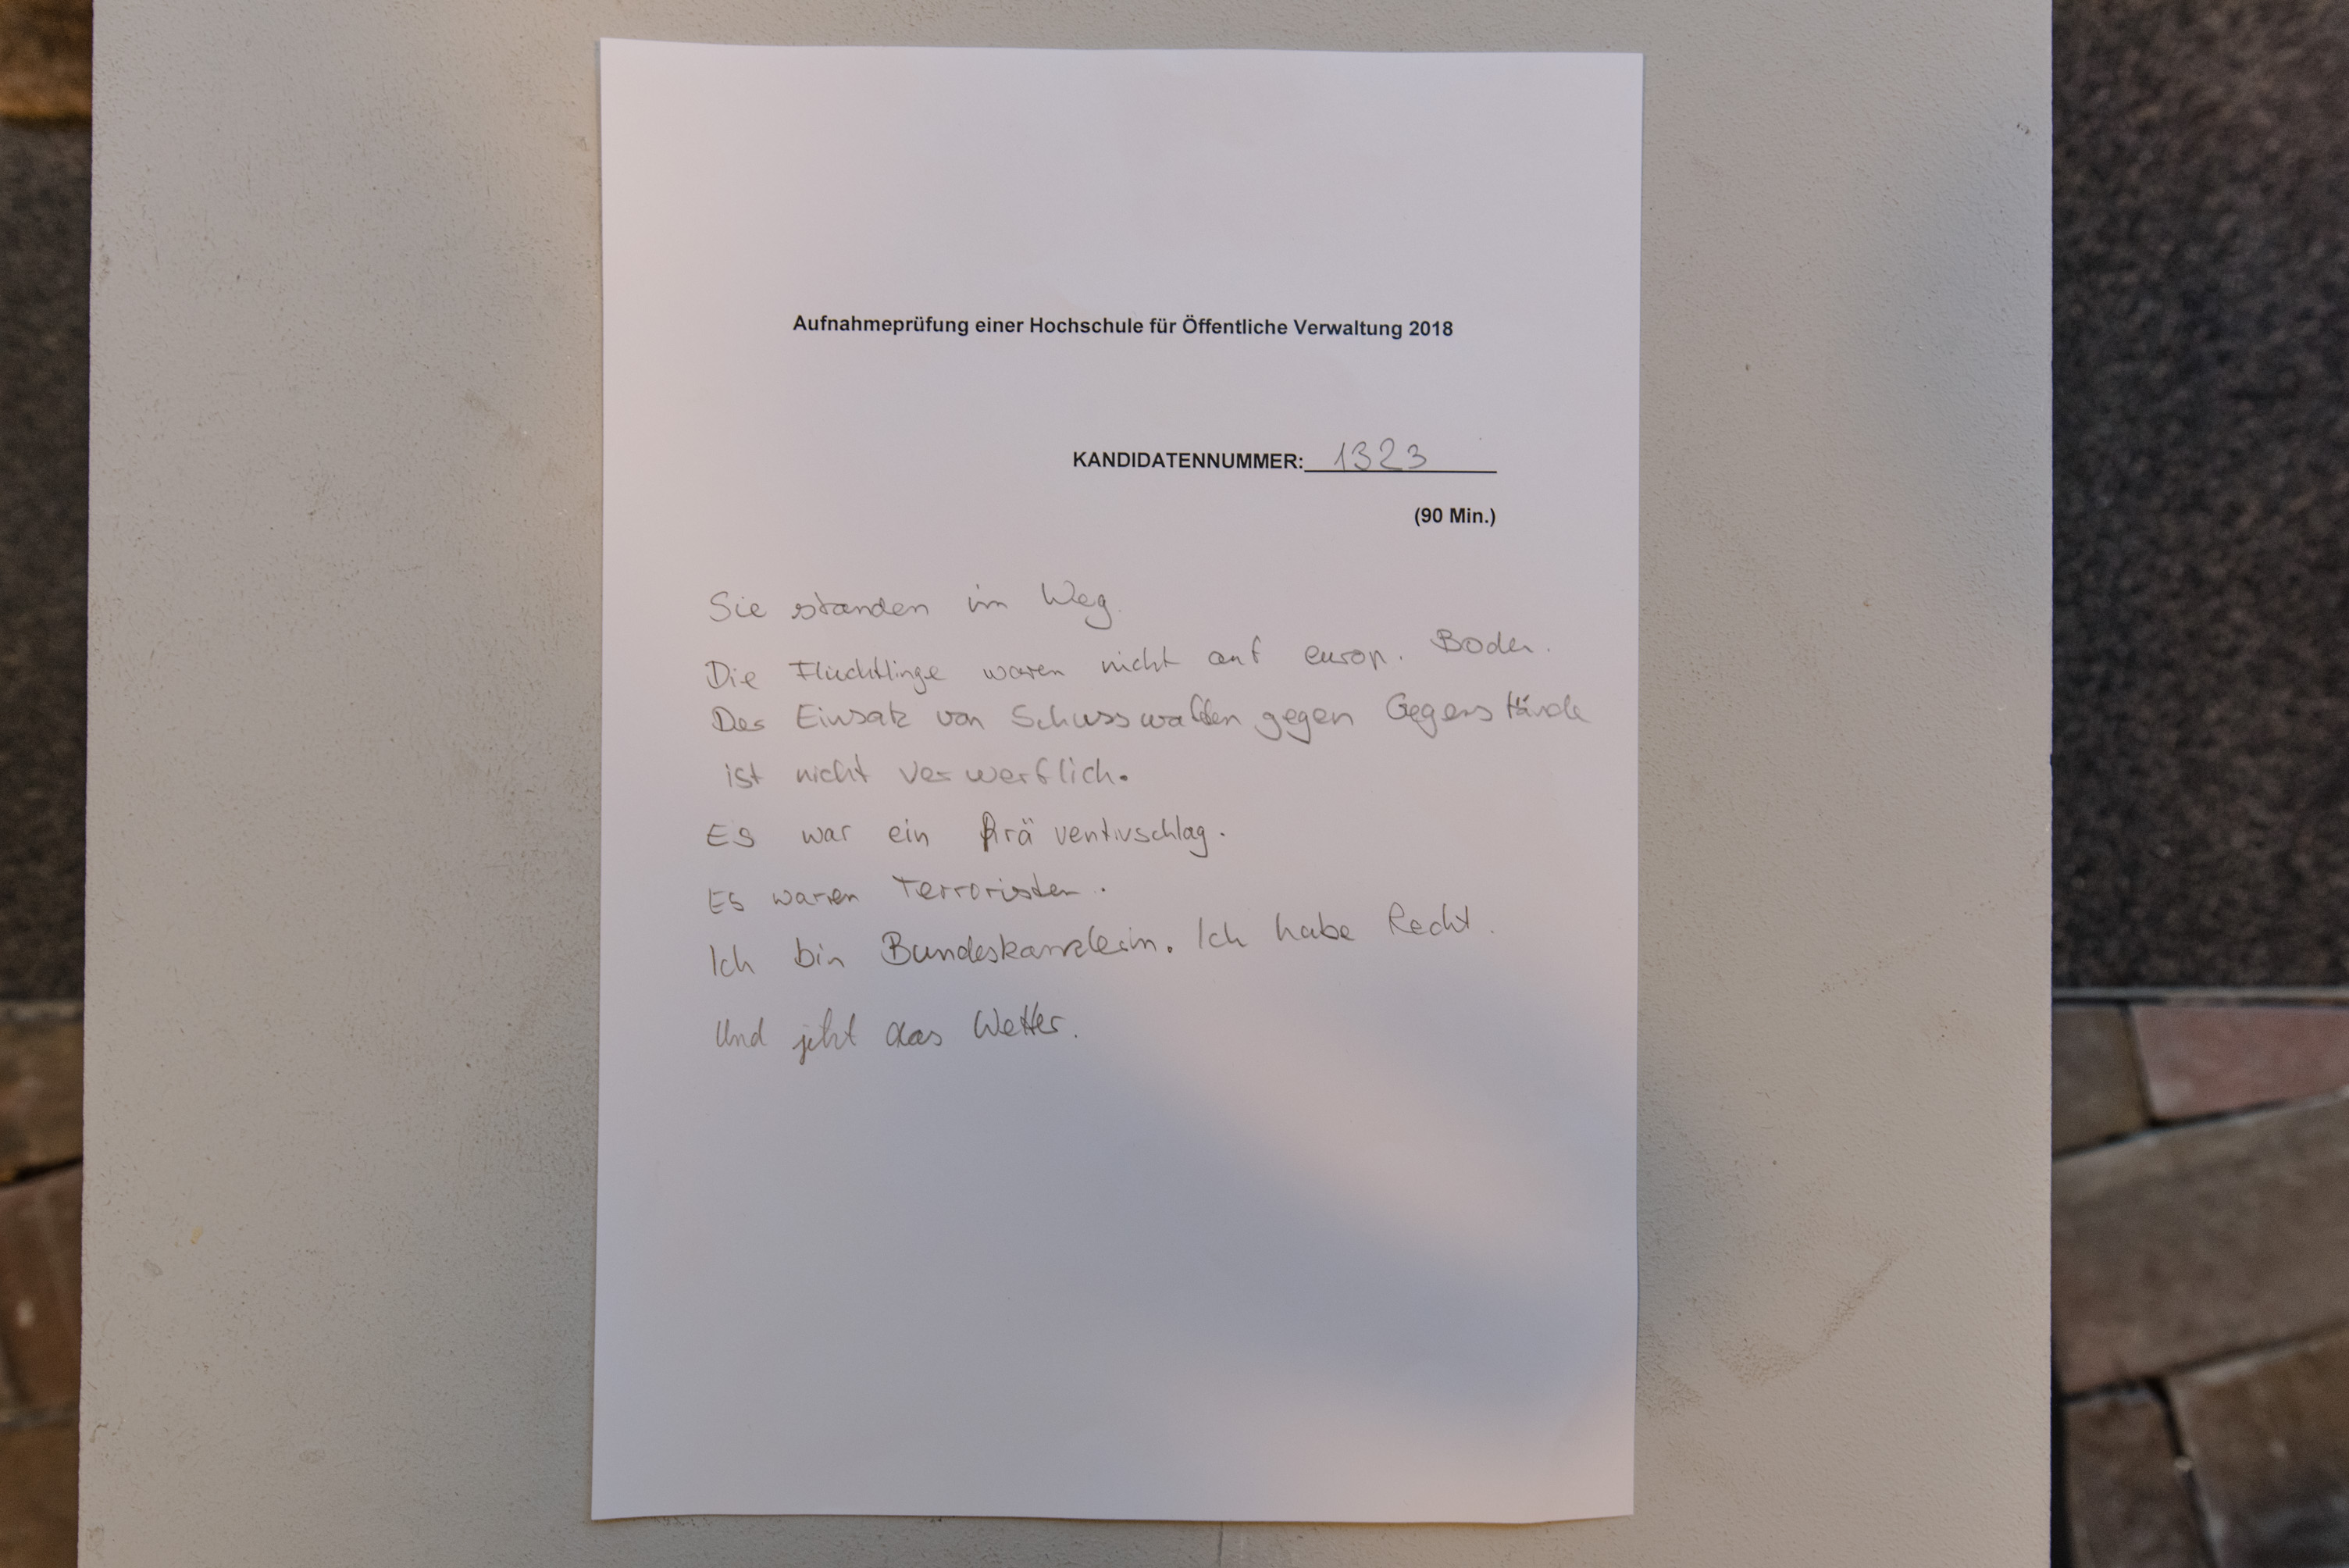 Aufnahmeprüfung einer Hochschule für Öffentliche Verwaltung 2018
KANDIDATENNUMMER: 1323
(90 Min.)
Sie standen im Weg.
Die Flüchtlinge waren nicht auf europ. Boden.
Der Einsatz von Schusswaffen gegen Gegenstände
ist nicht verwerflich.
Es war ein Präventivschlag.
Es waren Terroristen.
Ich bin Bundeskanzlerin. Ich habe Recht.
Und jetzt das Wetter.